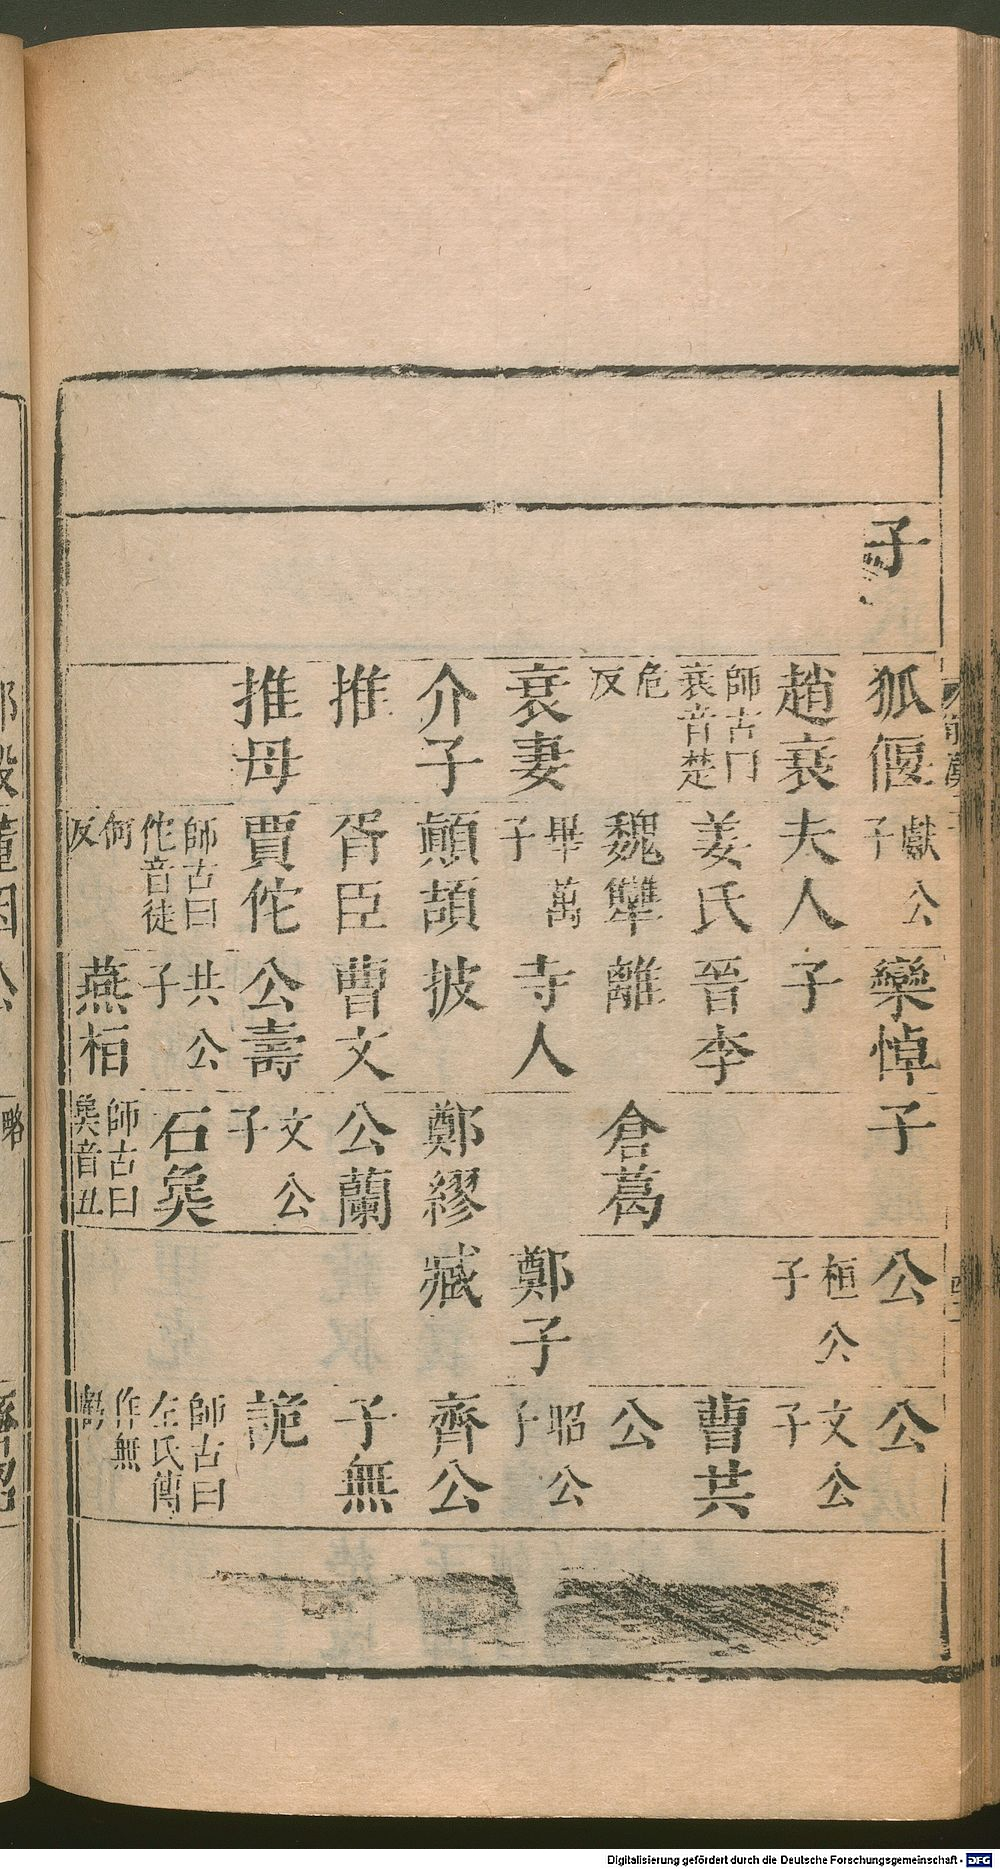 子
狐偃
趙衰
師古曰
衰音楚
危
反
衰妻
介子
推
推母
獻公
子
夫人
姜氏
魏犨
畢萬
子
顛頡
胥臣
賈佗
師古曰
佗音徒
何
反
欒悼
子
晉李
離
寺人
披
曹文
公壽
共公
子
燕桓
子
倉葛
鄭繆
公蘭
文公
子
石㚟
師古曰
㚟音丑
公
桓公
子
鄭子
臧
公
文公
子
曹共
公
昭公
子
齊公
子無
詭
師古曰
左氏傳
作無
虧
Digitalisierung gefördert durch die Deutsche Forschungsgemeinschaft - DFG